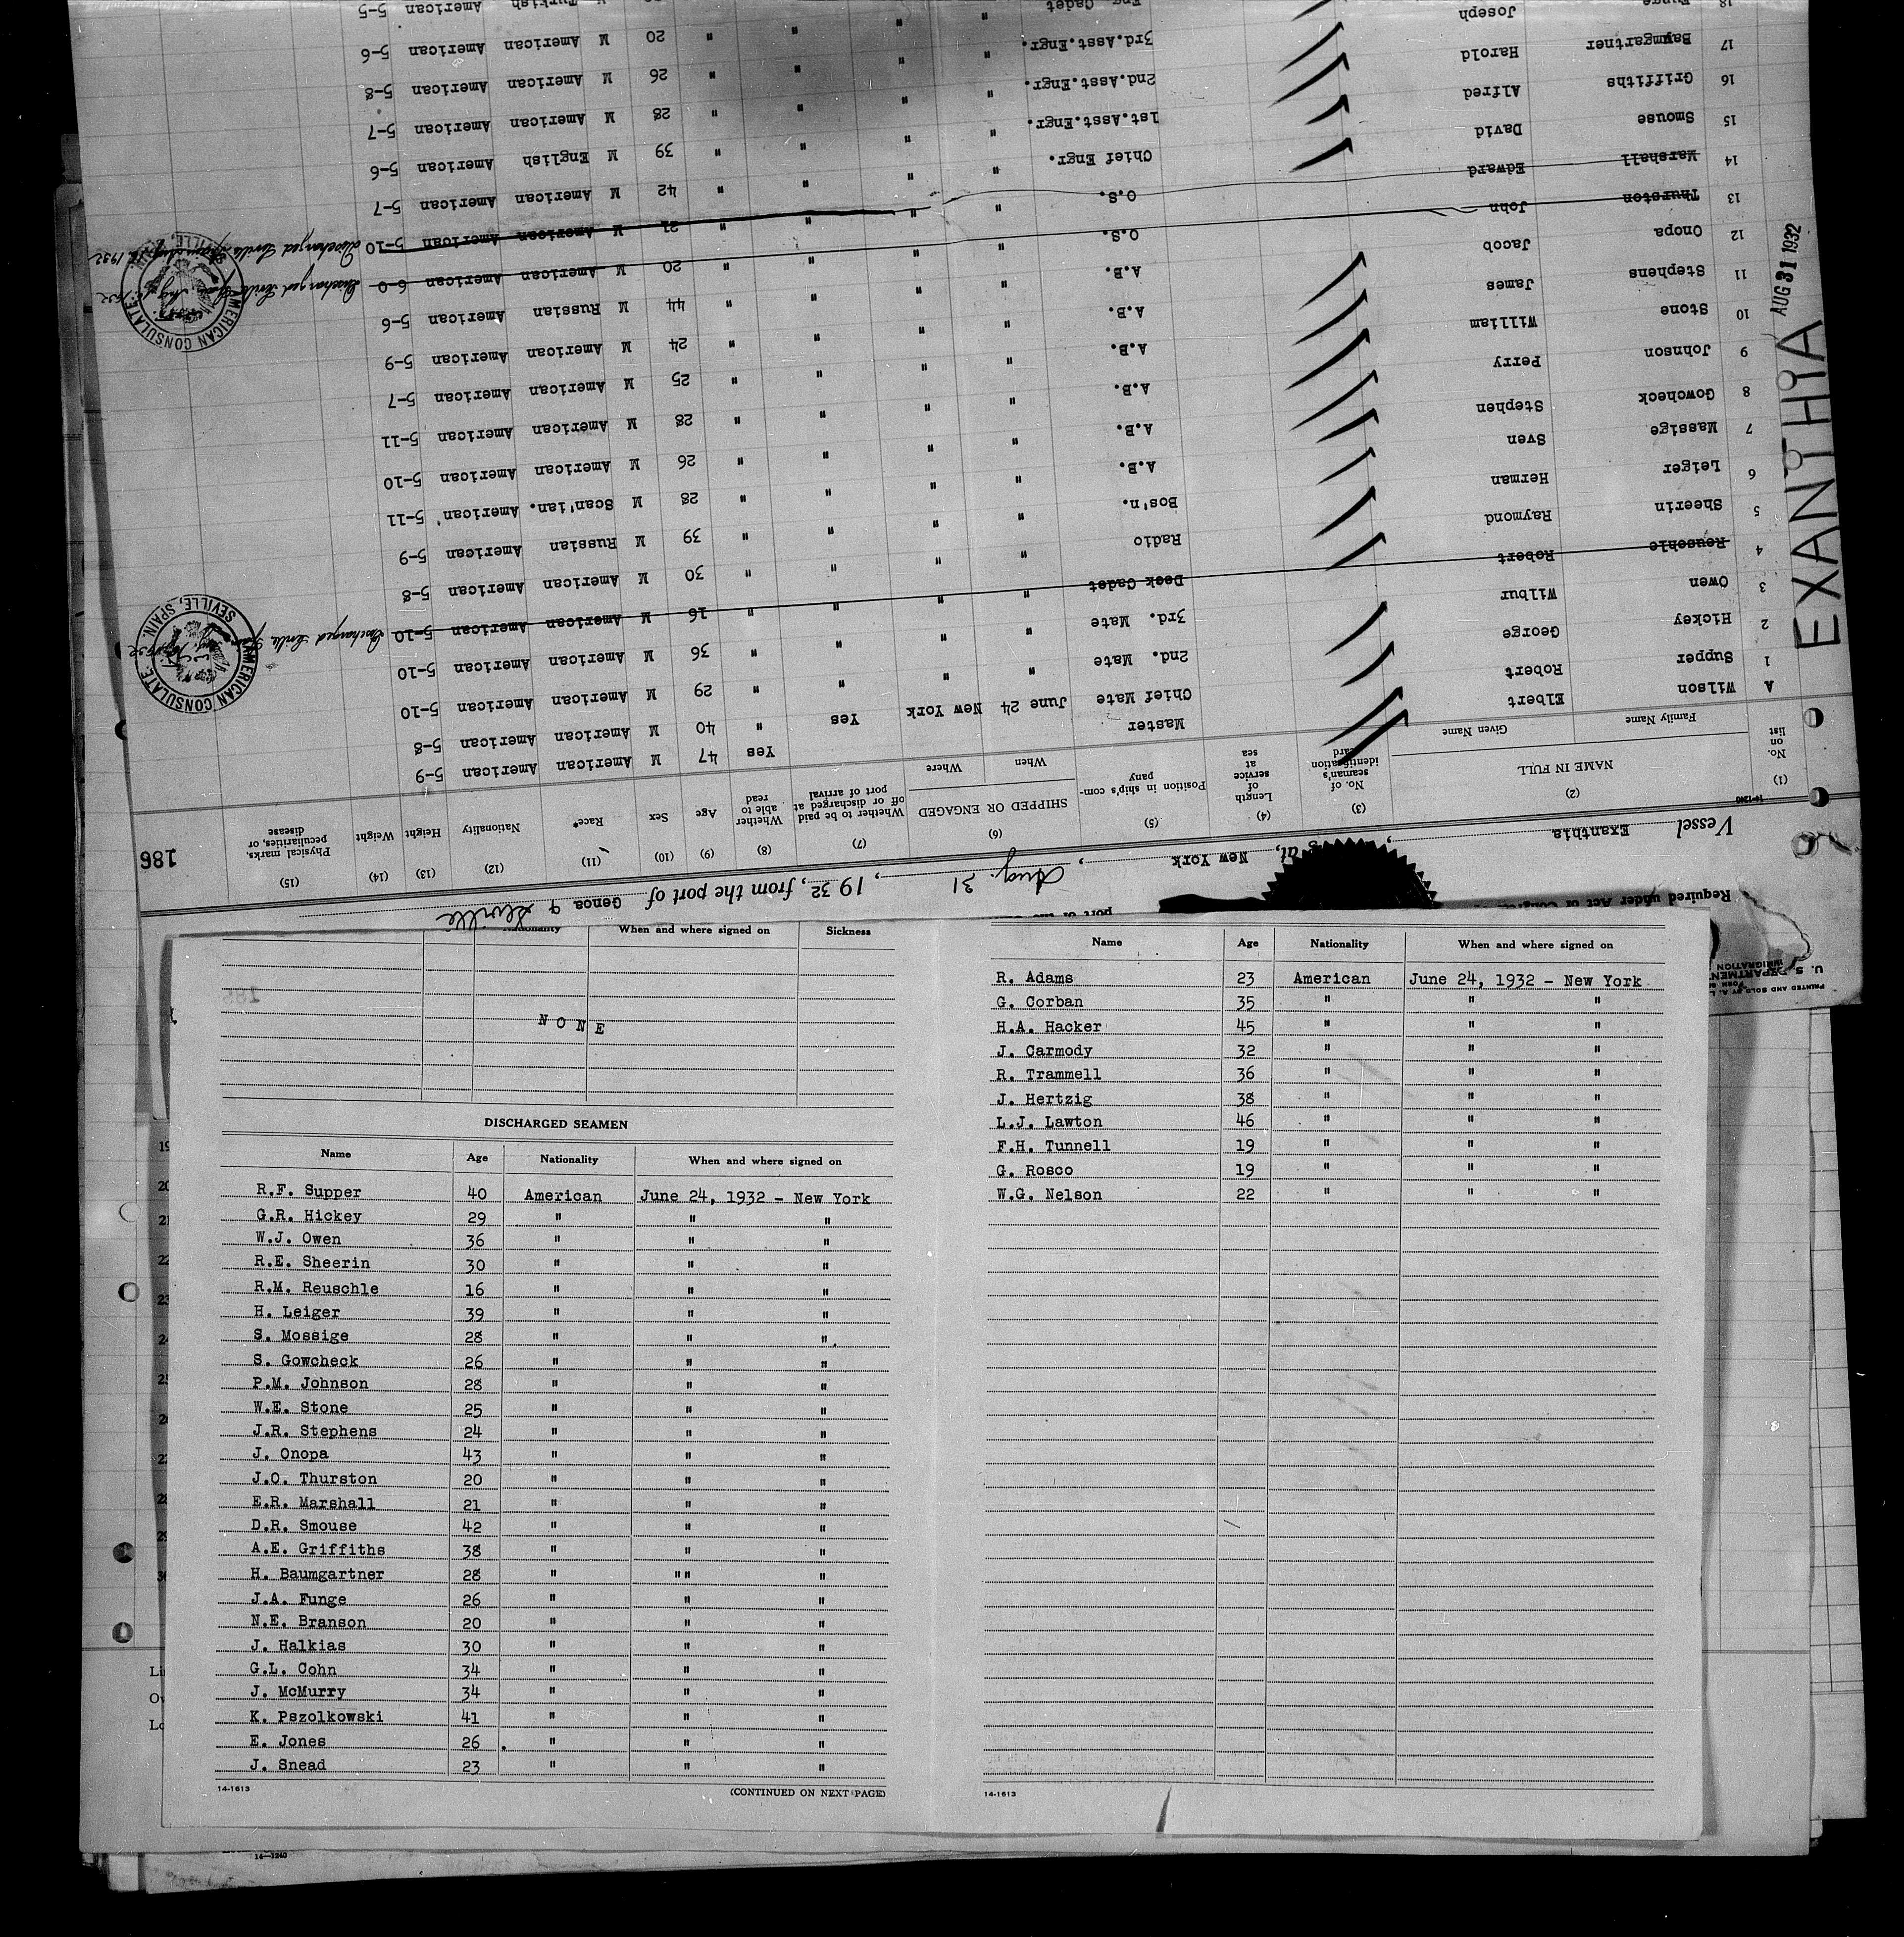 U. S. DEPARTMENT
IMMIGRATION
PRINTED AND SOLD BY A. L.
Required under Act of Congress
port of
Vessel Exanthia, at New York, Aug. 31, 1932, from the port of Genoa & Seville
186
14-1240
(1) (2) (3) (4) (5) (6) (7) (8) (9) (10) (11) (12) (13) (14) (15)
No. on list NAME IN FULL No. of seaman's identification card Length of service at sea Position in ship's company SHIPPED OR ENGAGED Whether to be paid off or discharged at port of arrival Whether able to read Age Sex Race* Nationality Height Weight Physical marks, peculiarities, or disease
Family Name Given Name When Where
A Wilson Elbert Master Yes 47 M American American 5-9
1 Supper Robert Chief Mate June 24 New York Yes " 40 M American American 5-8
2 Hickey George 2nd. Mate " " " " 29 M American American 5-10
3 Owen Wilbur 3rd. Mate " " " " 36 M American American 5-10
4 Reuschle Robert Deck Cadet " " " " 16 M American American 5-10 Discharged Seville, Spain
5 Sheerin Raymond Radio " " " " 30 M American American 5-8
6 Leiger Herman Bos'n. " " " " 39 M Russian American 5-9
7 Massige Sven A.B. " " " " 28 M Scan'ian. American 5-11
8 Gowcheck Stephen A.B. " " " " 26 M American American 5-10
9 Johnson Perry A.B. " " " " 28 M American American 5-11
10 Stone William A.B. " " " " 25 M American American 5-7
11 Stephens James A.B. " " " " 24 M American American 5-9
12 Onopa Jacob A.B. " " " " 44 M Russian American 5-6
13 Thurston John O.S. " " " " 20 M American American 6-0 Discharged Seville, Spain
14 Marshall Edward O.S. " " " " 21 M American American 5-10 Discharged Seville, Spain
15 Smouse David Chief Engr. " " " " 42 M American American 5-7
16 Griffiths Alfred 1st.Asst.Engr. " " " " 39 M English American 5-6
17 Baumgartner Harold 2nd.Asst.Engr. " " " " 28 M American American 5-7
18 Funge Joseph 3rd.Asst.Engr. " " " " 26 M American American 5-8
Eng Cadet " " " " 20 M American American 5-6
Turkish American 5-5
AMERICAN CONSULATE SEVILLE, SPAIN.
AMERICAN CONSULATE SEVILLE,
EXANTHIA AUG 31 1932
When and where signed on Sickness
NONE
DISCHARGED SEAMEN
Name Age Nationality When and where signed on
R.F. Supper 40 American June 24, 1932 - New York
G.R. Hickey 29 " " "
W.J. Owen 36 " " "
R.E. Sheerin 30 " " "
R.M. Reuschle 16 " " "
H. Leiger 39 " " "
S. Mossige 28 " " "
S. Gowcheck 26 " " "
P.M. Johnson 28 " " "
W.E. Stone 25 " " "
J.R. Stephens 24 " " "
J. Onopa 43 " " "
J.O. Thurston 20 " " "
E.R. Marshall 21 " " "
D.R. Smouse 42 " " "
A.E. Griffiths 38 " " "
H. Baumgartner 28 " "" "
J.A. Funge 26 " " "
N.E. Branson 20 " " "
J. Halkias 30 " " "
G.L. Cohn 34 " " "
J. McMurry 34 " " "
K. Pszolkowski 41 " " "
E. Jones 26 " " "
J. Snead 23 " " "
14-1613 (CONTINUED ON NEXT PAGE)
Name Age Nationality When and where signed on
R. Adams 23 American June 24, 1932 - New York
G. Corban 35 " " "
H.A. Hacker 45 " " "
J. Carmody 32 " " "
R. Trammell 36 " " "
J. Hertzig 38 " " "
L.J. Lawton 46 " " "
F.H. Tunnell 19 " " "
G. Rosco 19 " " "
W.G. Nelson 22 " " "
14-1613
14-1240